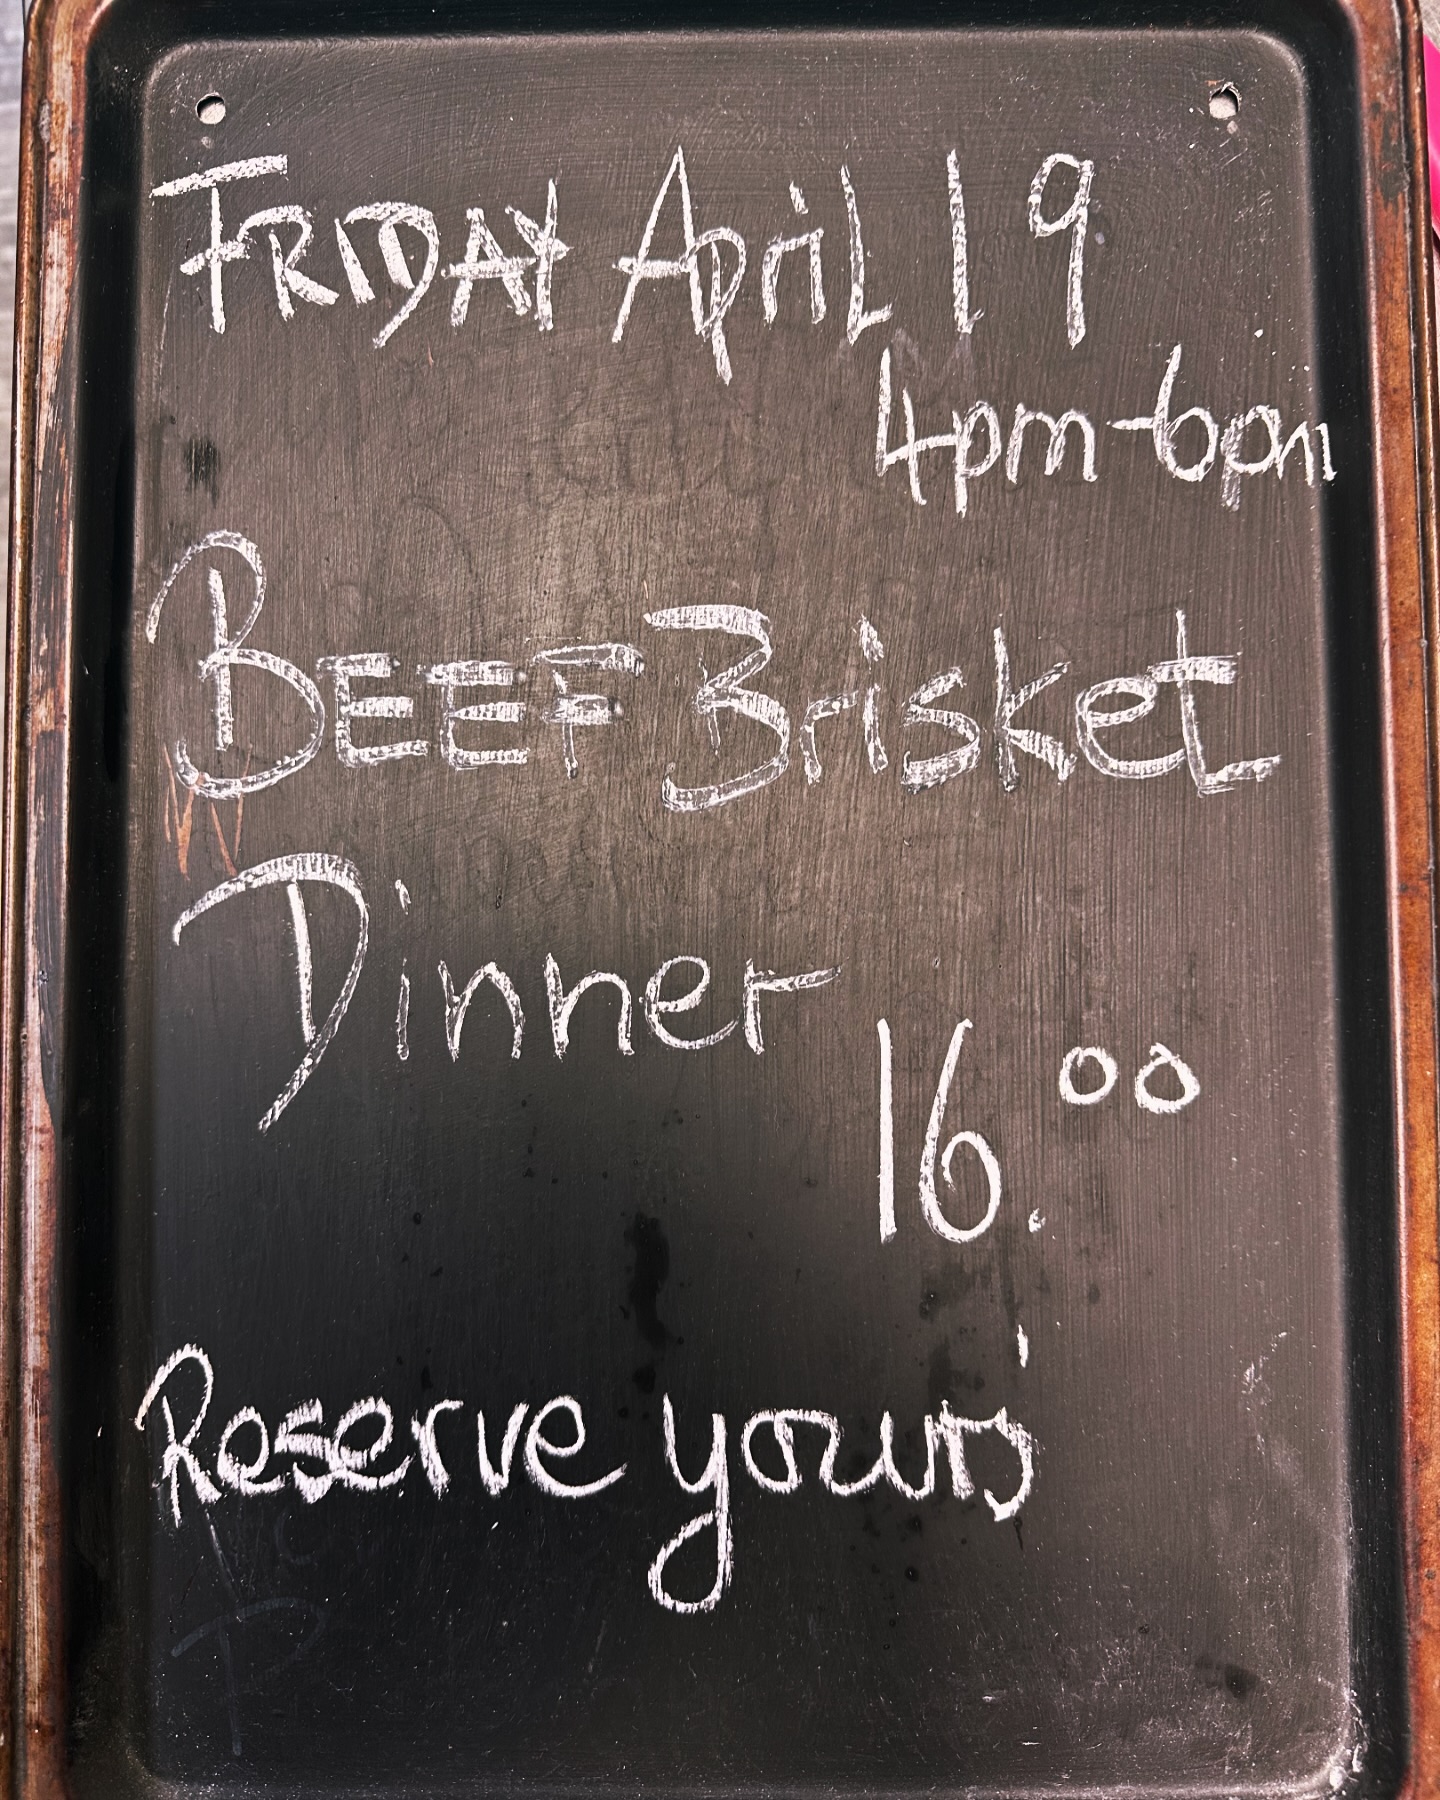 FRIDAY ApriL 19
4pm-6pm
BEEF Brisket
Dinner
16.00
Reserve yours